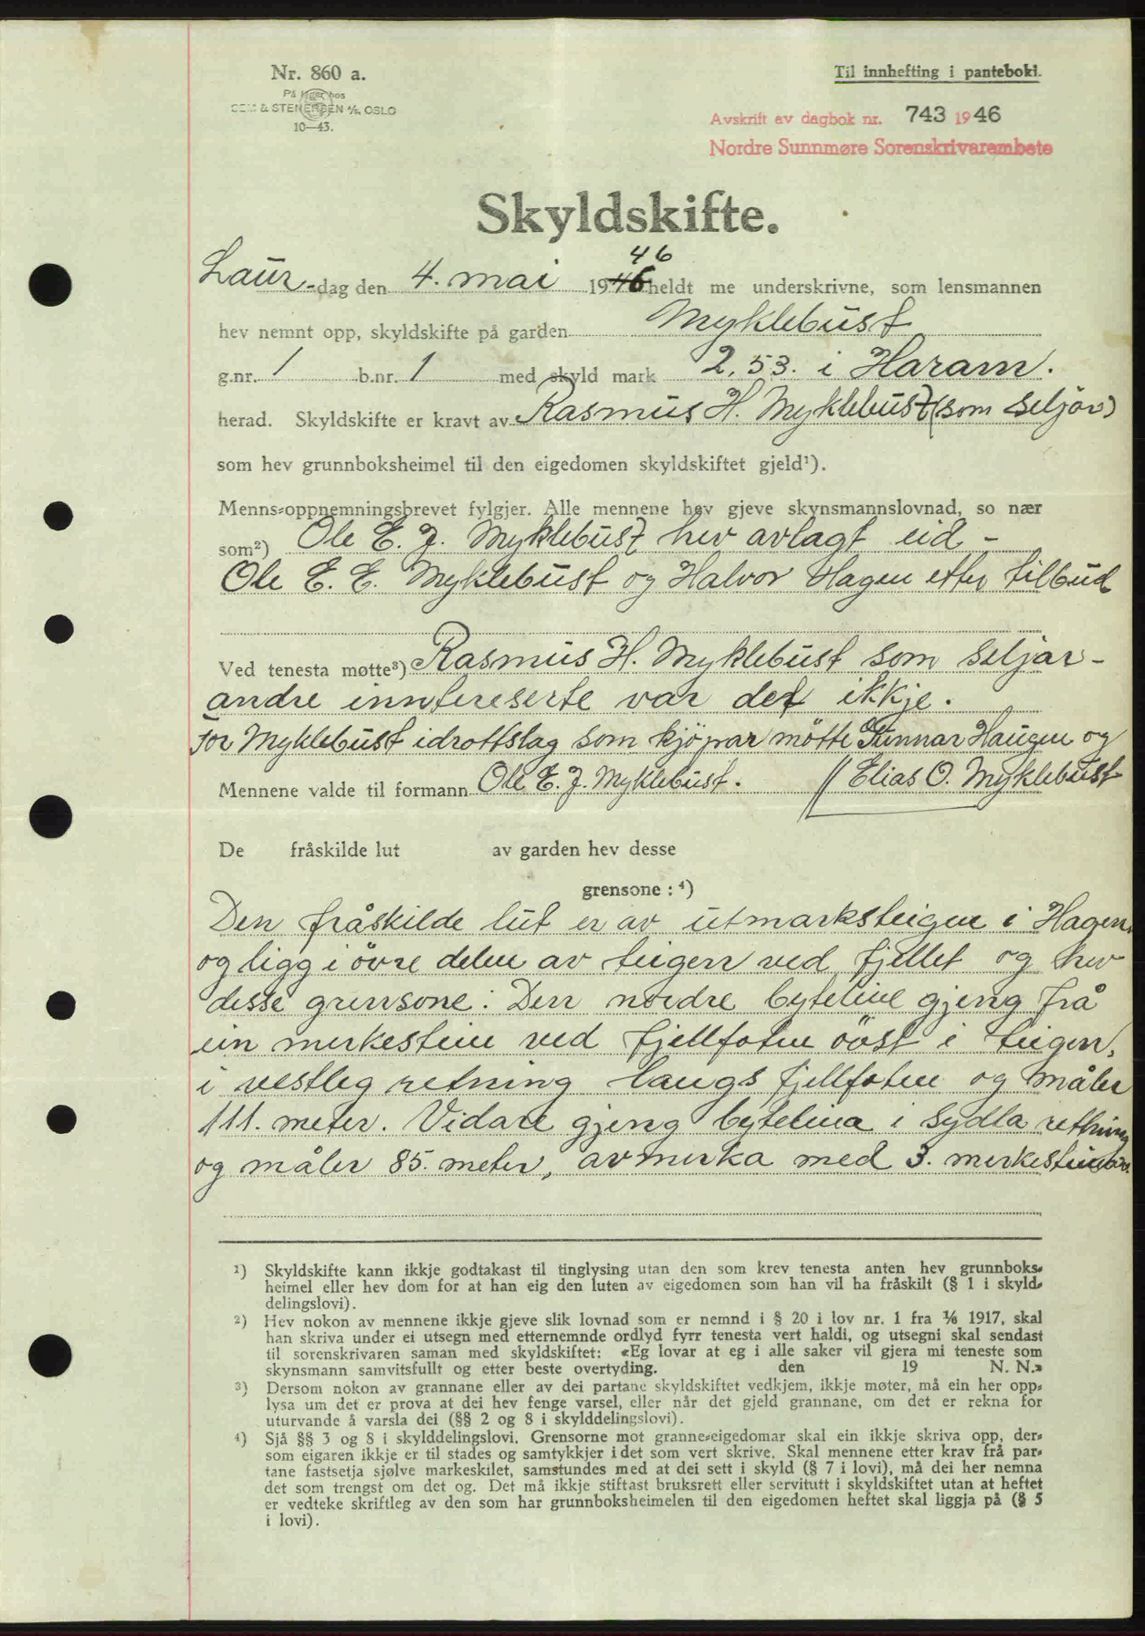 Nr. 860 a.
På lager hos
SEM & STENERSEN A/S, OSLO
10—43.
Til innhefting i panteboki.
Avskrift av dagbok nr. 743 1946
Nordre Sunnmøre Sorenskrivarembete
Skyldskifte.
46
Laur-dag den 4. mai 1946 heldt me underskrivne, som lensmannen
hev nemnt opp, skyldskifte på garden Myklebust
g.nr. 1 b.nr. 1 med skyld mark 2,53. i Haram.
herad. Skyldskifte er kravt av Rasmus H. Myklebust (som seljar)
som hev grunnboksheimel til den eigedomen skyldskiftet gjeld¹).
Menns-oppnemningsbrevet fylgjer. Alle mennene hev gjeve skynsmannslovnad, so nær
som²) Ole E. J. Myklebust hev avlagt eid -
Ole E. E. Myklebust og Halvor Hagen etter tilbud
Ved tenesta møtte³) Rasmus H. Myklebust som seljar -
andre inntereserte var det ikkje.
For Myklebust idrottslag som kjöpar mötte Gunnar Haugen og
Mennene valde til formann Ole E. J. Myklebust. // Elias O. Myklebust
De fråskilde lut av garden hev desse
grensone : ⁴)
Den fråskilde lut er av utmarksteigen i Hagen,
og ligg i övre delen av teigen ved fjellet og hev
desse grensone: Den nordre byteline gjeng frå
ein merkestein ved fjellfoten övst i teigen,
i vestleg retning langs fjellfoten og måler
111. meter. Vidare gjeng bytelina i sydla retning
og måler 85. meter, avmerka med 3. merkesteinar.
¹) Skyldskifte kann ikkje godtakast til tinglysing utan den som krev tenesta anten hev grunnboks-
heimel eller hev dom for at han eig den luten av eigedomen som han vil ha fråskilt (§ 1 i skyld-
delingslovi).
²) Hev nokon av mennene ikkje gjeve slik lovnad som er nemnd i § 20 i lov nr. 1 fra 1/6 1917, skal
han skriva under ei utsegn med etternemnde ordlyd fyrr tenesta vert haldi, og utsegni skal sendast
til sorenskrivaren saman med skyldskiftet: «Eg lovar at eg i alle saker vil gjera mi teneste som
skynsmann samvitsfullt og etter beste overtyding. den 19 N. N.»
³) Dersom nokon av grannane eller av dei partane skyldskiftet vedkjem, ikkje møter, må ein her opp-
lysa um det er prova at dei hev fenge varsel, eller når det gjeld grannane, om det er rekna for
uturvande å varsla dei (§§ 2 og 8 i skylddelingslovi).
⁴) Sjå §§ 3 og 8 i skylddelingslovi. Grensorne mot granne-eigedomar skal ein ikkje skriva opp, der-
som eigaren ikkje er til stades og samtykkjer i det som vert skrive. Skal mennene etter krav frå par-
tane fastsetja sjølve markeskilet, samstundes med at dei sett i skyld (§ 7 i lovi), må dei her nemna
det som trengst om det og. Det må ikkje stiftast bruksrett eller servitutt i skyldskiftet utan at heftet
er vedteke skriftleg av den som har grunnboksheimelen til den eigedomen heftet skal liggja på (§ 5
i lovi).